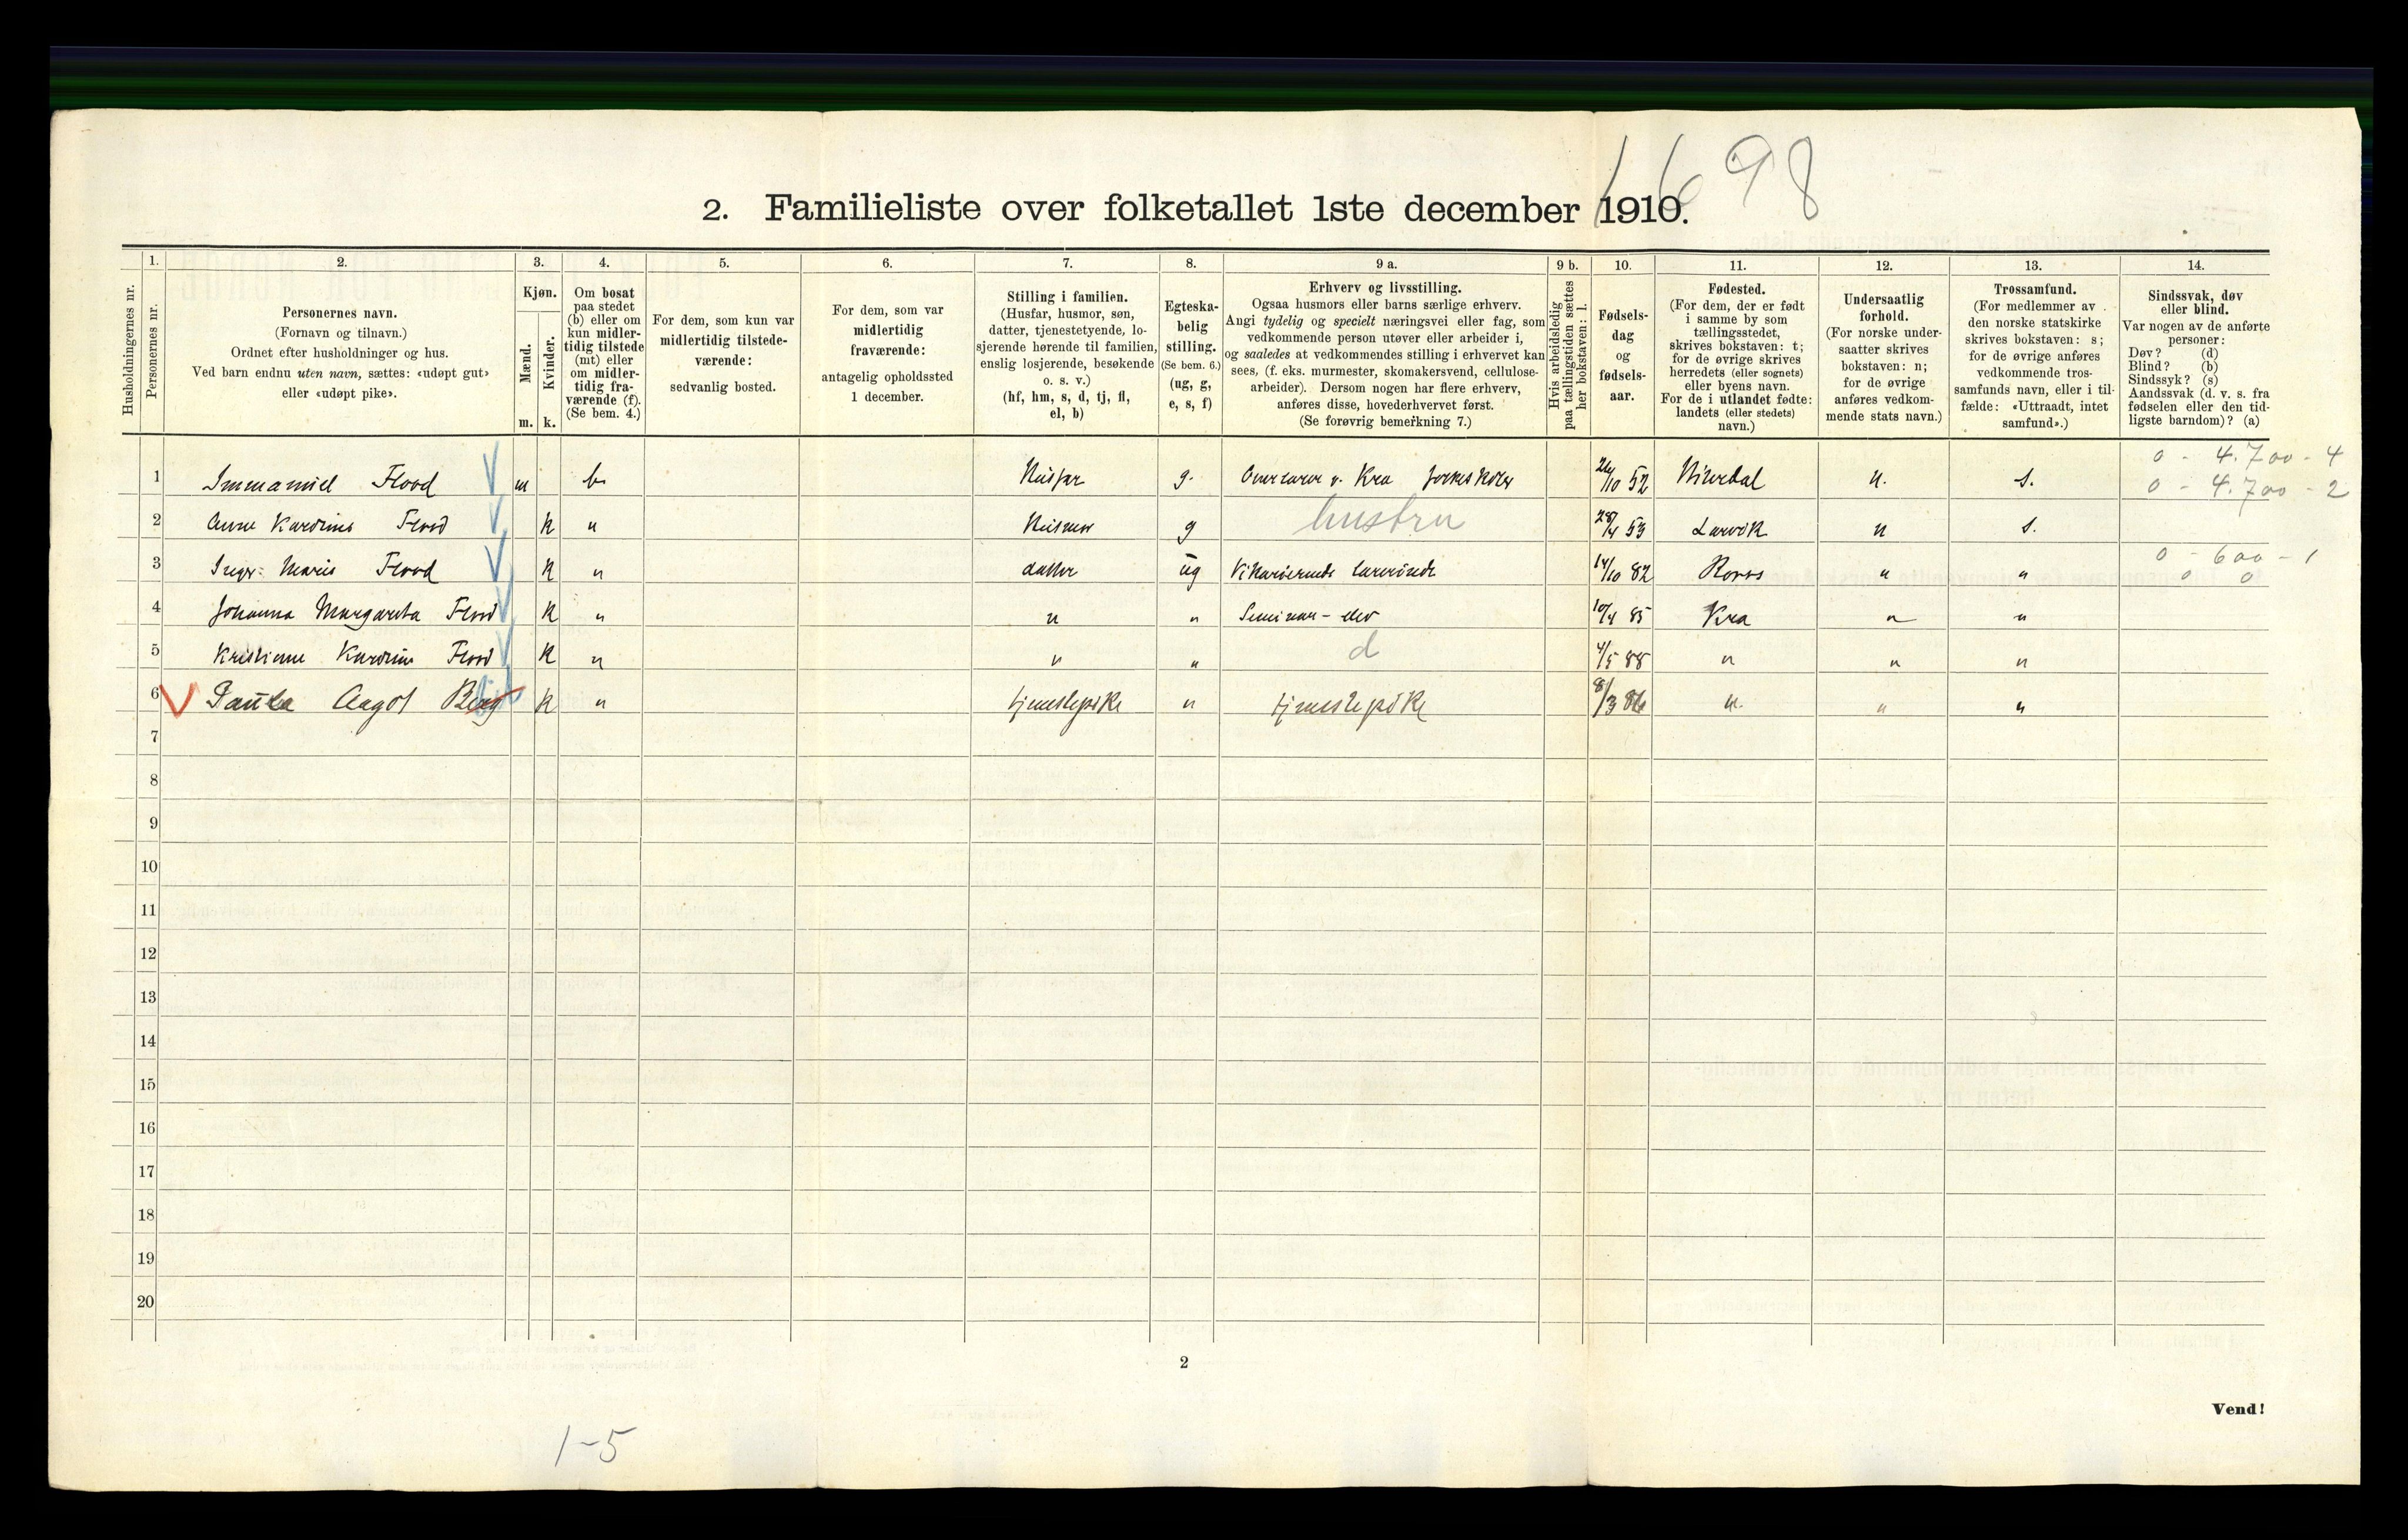 1698
2. Familieliste over folketallet 1ste december 1910.
Husholdningernes nr.
1. Personernes nr.
2. Personernes navn.
(Fornavn og tilnavn.)
Ordnet efter husholdninger og hus.
Ved barn endnu uten navn, sættes: «udøpt gut»
eller «udøpt pike».
3. Kjøn.
Mænd. m.
Kvinder. k.
4. Om bosat
paa stedet
(b) eller om
kun midler-
tidig tilstede
(mt) eller
om midler-
tidig fra-
værende (f).
(Se bem. 4.)
5. For dem, som kun var
midlertidig tilstede-
værende:
sedvanlig bosted.
6. For dem, som var
midlertidig
fraværende:
antagelig opholdssted
1 december.
7. Stilling i familien.
(Husfar, husmor, søn,
datter, tjenestetyende, lo-
sjerende hørende til familien,
enslig losjerende, besøkende
o. s. v.)
(hf, hm, s, d, tj, fl,
el, b)
8. Egteska-
belig
stilling.
(Se bem. 6.)
(ug, g,
e, s, f)
9 a. Erhverv og livsstilling.
Ogsaa husmors eller barns særlige erhverv.
Angi tydelig og specielt næringsvei eller fag, som
vedkommende person utøver eller arbeider i,
og saaledes at vedkommendes stilling i erhvervet kan
sees, (f. eks. murmester, skomakersvend, cellulose-
arbeider). Dersom nogen har flere erhverv,
anføres disse, hovederhvervet først.
(Se forøvrig bemerkning 7.)
9 b. Hvis arbeidsledig
paa tællingstiden sættes
her bokstaven: l.
10. Fødsels-
dag
og
fødsels-
aar.
11. Fødested.
(For dem, der er født
i samme by som
tællingsstedet,
skrives bokstaven: t;
for de øvrige skrives
herredets (eller sognets)
eller byens navn.
For de i utlandet fødte:
landets (eller stedets)
navn.)
12. Undersaatlig
forhold.
(For norske under-
saatter skrives
bokstaven: n;
for de øvrige
anføres vedkom-
mende stats navn.)
13. Trossamfund.
(For medlemmer av
den norske statskirke
skrives bokstaven: s;
for de øvrige anføres
vedkommende tros-
samfunds navn, eller i til-
fælde: «Uttraadt, intet
samfund».)
14. Sindssvak, døv
eller blind.
Var nogen av de anførte
personer:
Døv? (d)
Blind? (b)
Sindssyk? (s)
Aandssvak (d. v. s. fra
fødselen eller den tid-
ligste barndom)? (a)
0 - 4.700 - 4
1 Immanuel Flood m b Husfar g. Overlærer v. Kra folkeskoler 26/10 52 n. s. 0 - 4.700 - 2
2 Anne Kardine Flood k " Husmor g hustru 28/4 53 Larvik n s.
3 Inger Marie Flood k " datter ug Vikarierende lærerinde 14/10 82 Røros " " 0 - 600 - 1
0 0
4 Johanna Margareta Flood k " " " Seminar-elev 10/4 85 Kra " "
5 Kristiane Kardine Flood k " " " d 4/5 88 " " "
6 Paula Aagot Berg k " tjenestepike " tjenestepike 8/3 86 " " "
7
8
9
10
11
12
13
14
15
16
17
18
19
20
2
Vend!
1-5